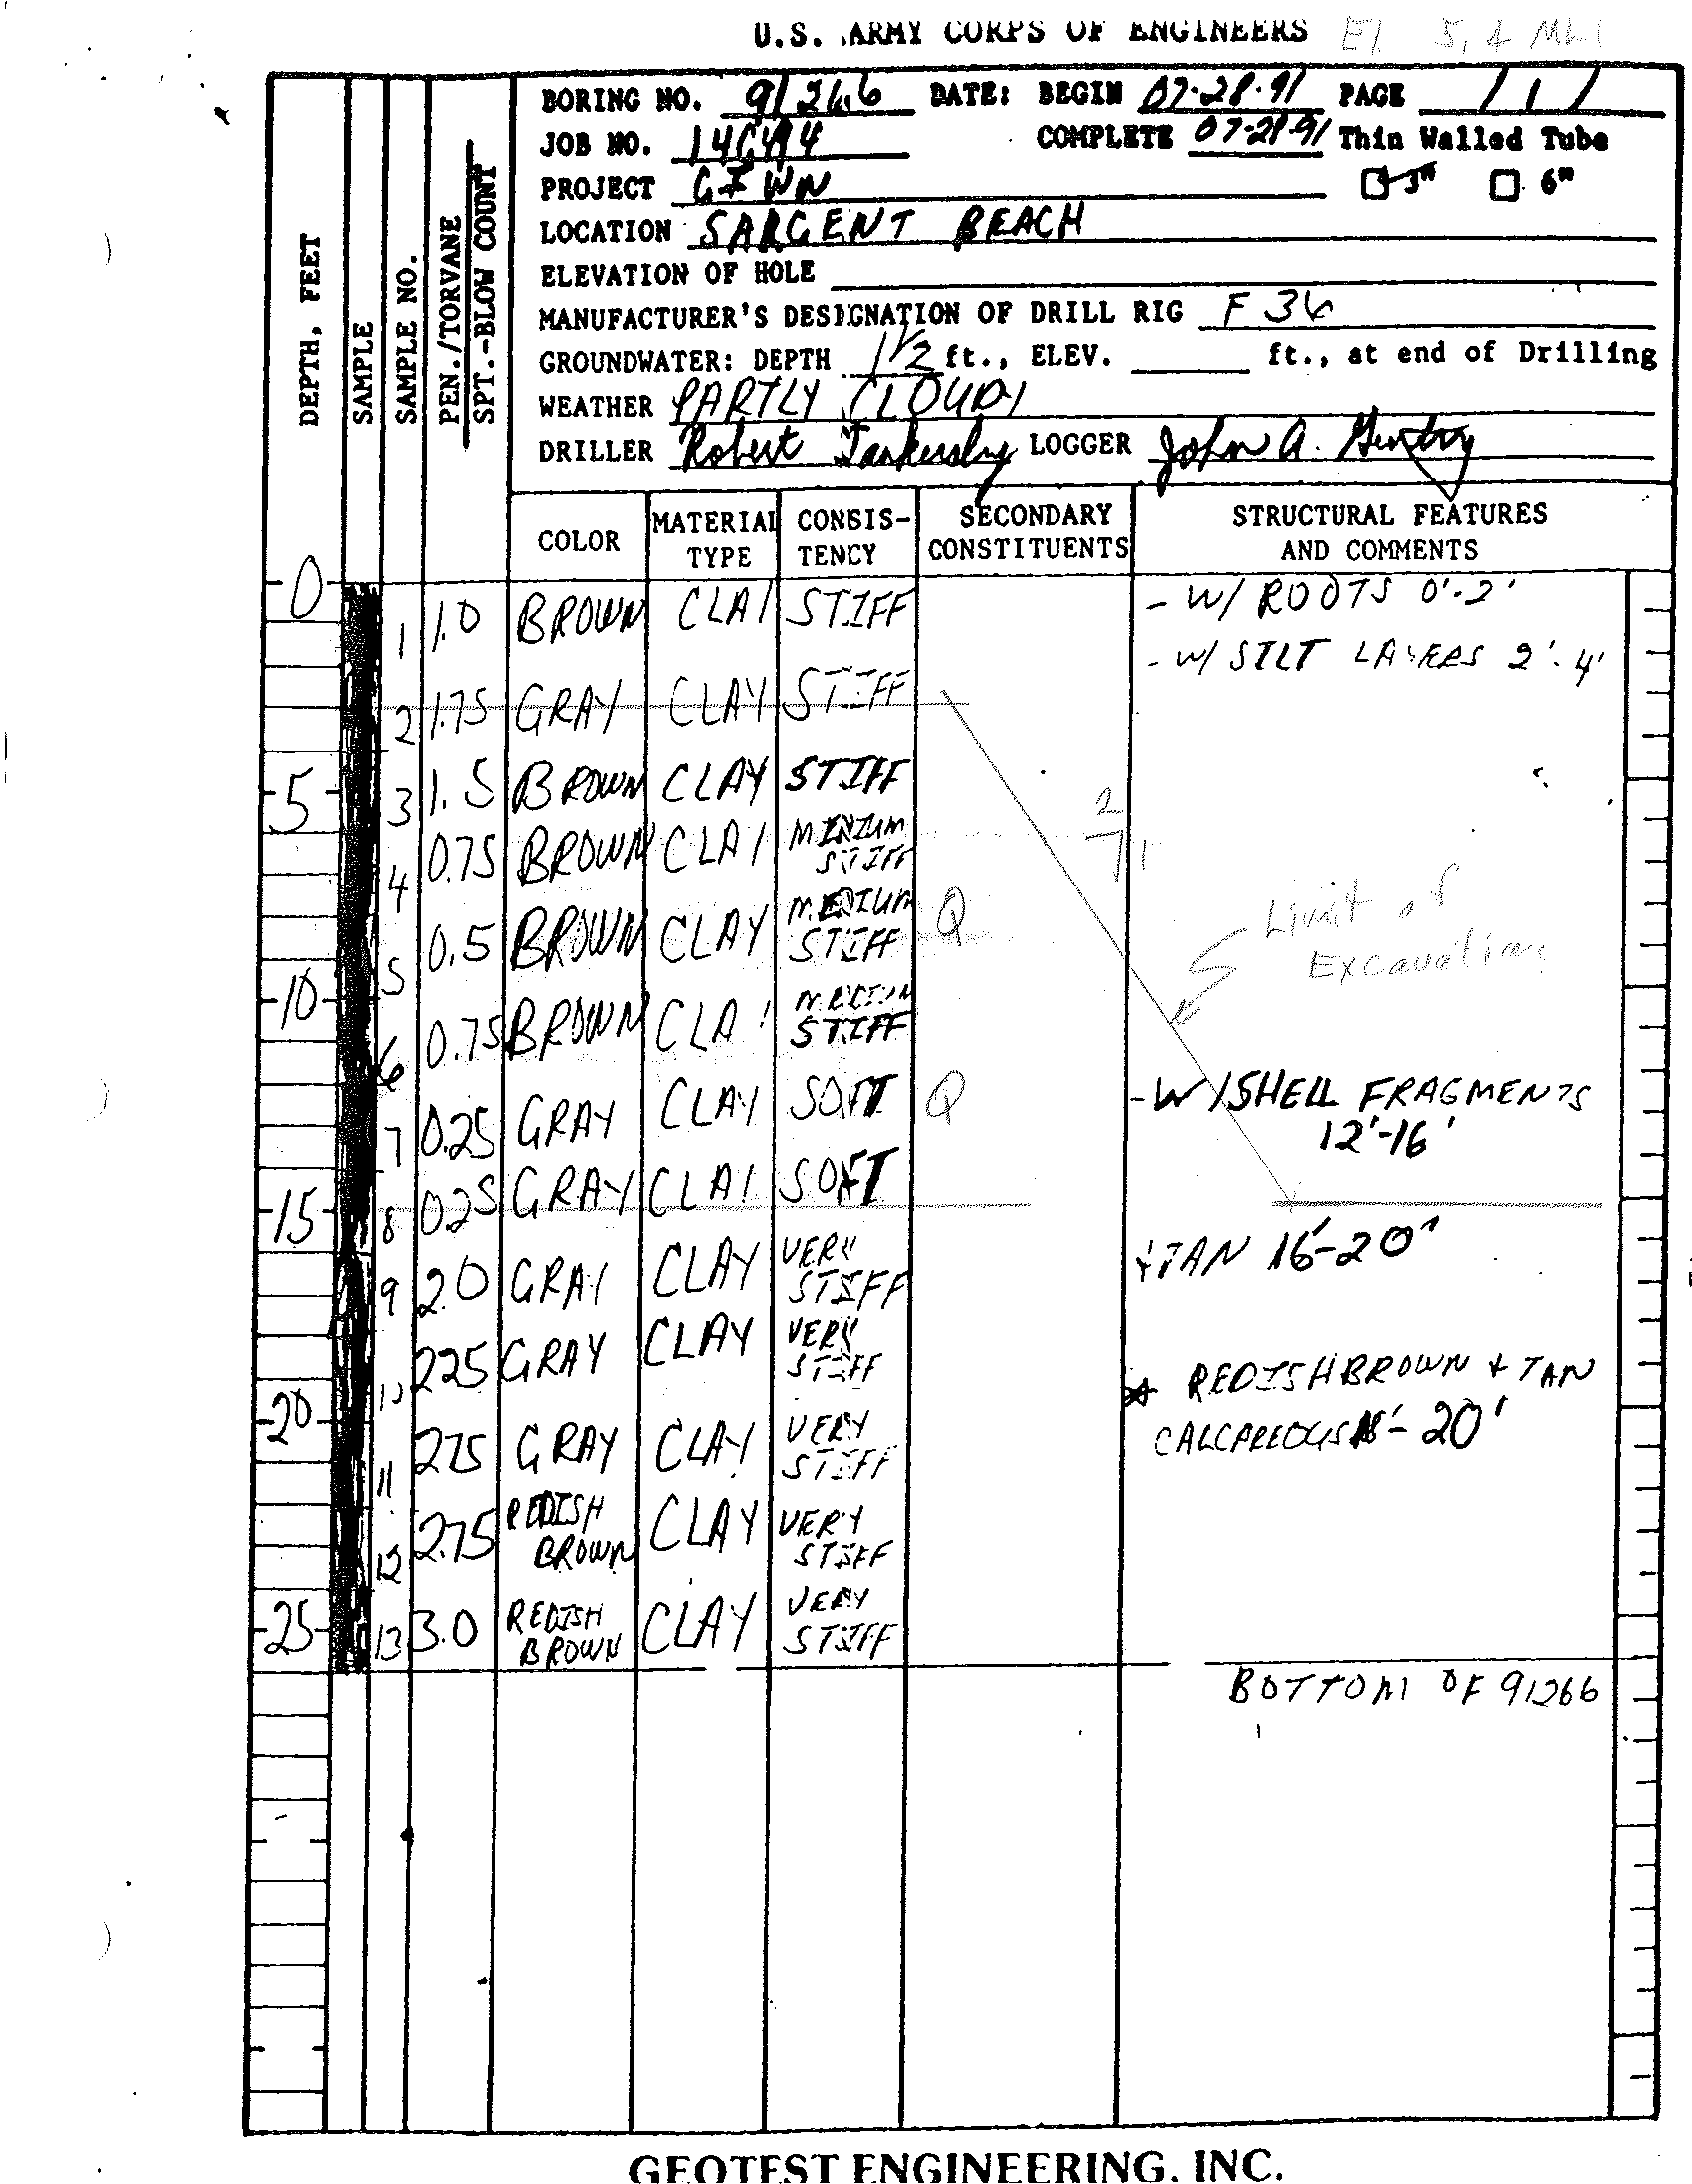 U.S. ARMY CORPS OF ENGINEERS El 5.4 MLT
BORING NO. 91266 DATE: BEGIN 07-28-91 PAGE 1 / 1
JOB NO. COMPLETE 07-28-91 Thin Walled Tube
PROJECT GIWW 3" 6"
LOCATION SARGENT BEACH
ELEVATION OF HOLE
MANUFACTURER'S DESIGNATION OF DRILL RIG F 36
GROUNDWATER: DEPTH 1 1/2 ft., ELEV. ft., at end of Drilling
WEATHER PARTLY CLOUDY
DRILLER Robert Tankersley LOGGER John A. Gentry
DEPTH, FEET
SAMPLE
SAMPLE NO.
PEN./TORVANE
SPT.-BLOW COUNT
COLOR MATERIAL TYPE CONSIS-TENCY SECONDARY CONSTITUENTS STRUCTURAL FEATURES AND COMMENTS
0
1 1.0 BROWN CLAY STIFF - W/ ROOTS 0'-2'
- W/ SILT LAYERS 2'-4'
2 1.75 GRAY CLAY STIFF
5 3 1.5 BROWN CLAY STIFF
2
1
4 0.75 BROWN CLAY MEDIUM STIFF
5 0.5 BROWN CLAY MEDIUM STIFF Q Limit of
Excavation
10
6 0.75 BROWN CLAY MEDIUM STIFF
7 0.25 GRAY CLAY SOFT Q - W/SHELL FRAGMENTS
12'-16'
15 8 0.25 GRAY CLAY SOFT
9 2.0 GRAY CLAY VERY STIFF + TAN 16'-20'
10 2.25 GRAY CLAY VERY STIFF REDISHBROWN + TAN
20 CALCAREOUS 18'-20'
11 2.75 GRAY CLAY VERY STIFF
12 2.75 REDISH BROWN CLAY VERY STIFF
25 13 3.0 REDISH BROWN CLAY VERY STIFF
BOTTOM OF 91266
GEOTEST ENGINEERING, INC.